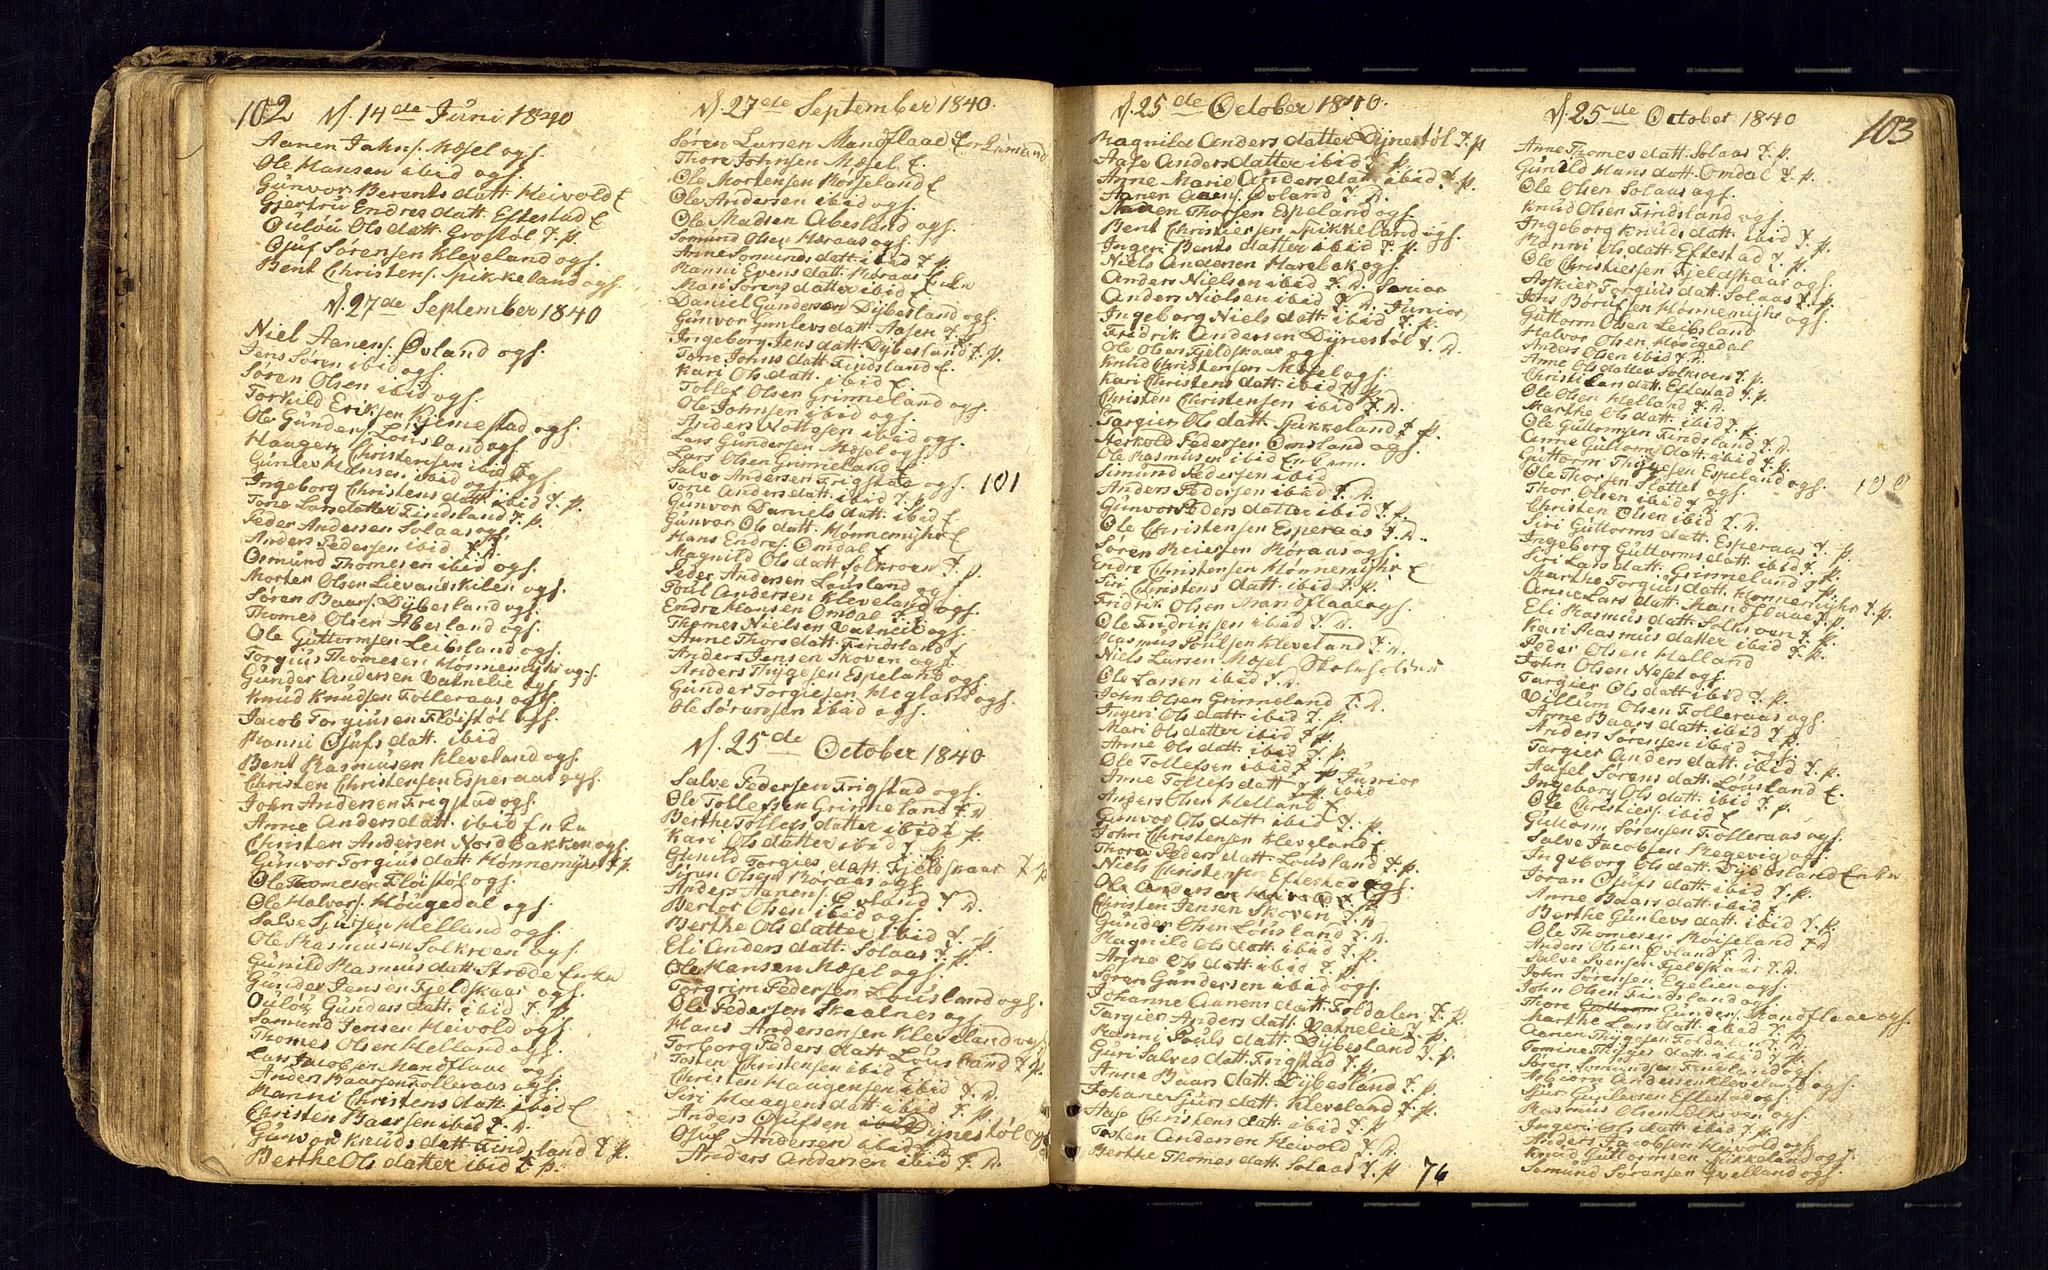 102
N. 14de Juni 1840
Aanen Jahns. Mæsel ogf.
Ole Hansen ibid ogf.
Gunvor Berents datt. Heivold E
Giertru Endres datt. Eftestad E
Oulou Ols datt. Grostøl T. P.
Ojuf Sørensen Kleveland ogf.
Bent Christens. Spikkeland ogf.
N. 27de September 1840
Niel Aanens. Øvland ogf.
Jens Søren ibid ogf.
Søren Olsen ibid ogf.
Torkild Eriksen Kjemestad ogf.
Ole Gunders. Lousland ogf.
Haagen Christensen ibid ogf.
Gunlev Hansen ibid ogf.
Ingeborg Christens datt. ibid T. P.
Tone Lars datter Findsland T. P.
Peder Andersen Solaas ogf.
Anders Pedersen ibid T. D.
Osmund Thomesen ibid ogf.
Morten Olsen Lievandskilen ogf.
Søren Baars. Dybesland ogf.
Thomes Olsen Abesland ogf.
Ole Guttormsen Leibsland ogf.
Torgius Thomesen Hønnemyhr ogf.
Gunder Andersen Vatnelie ogf.
Knud Knudsen Folleraas ogf.
Jacob Torgiusen Fløistøl ogf.
Ranni Ojufs datt. ibid
Bent Rasmusen Kleveland ogf.
Christen Christensen Esperaas ogf.
John Andersen Frigstad ogf.
Anne Anders datt. ibid Enke
Christen Andersen Nordbakken ogf.
Gunvor Torgius datt. Hønnemyhr T. P.
Ole Thomesen Fløistøl ogf.
Ole Halvors. Hougedal ogf.
Salve Sjursen Helland ogf.
Ole Rasmusen Solkroen ogf.
Gunild Rasmus datt. Stræde Enke
Gunder Jensen Fjeldskaar ogf.
Oulou Gunders datt. ibid T. P.
Samund Jensen Heivold ogf.
Thomes Olsen Helland ogf.
Lars Jacobsen Mandflaae ogf.
Anders Baarsen Folleraas ogf.
Ranni Christens datt. ibid E
Christen Baarsen ibid T. D.
Gunvor Knuds datt. Findsland T. P.
Berthe Ols datter ibid T. P.
N. 27de September 1840.
Søren Larsen Mandflaae E
Thore Johnsen Mæsel E.
Ole Mortensen Røiseland E
Ole Andersen ibid ogf.
Ole Madsen Abesland ogf.
Somund Olsen Høraas ogf.
Anne Somunds datt. ibid T. P.
Ranni Evens datt. Røraas Enke
Mari Sørens datter ibid E
Daniel Gundersen Dybesland ogf.
Gunvor Gunlevs datt. Aasen T. P.
Ingeborg Jens datt. Dybesland T. P.
Tone Johns datt. Findsland E.
Kari Ols datt. ibid E.
Tollef Olsen Grimeland ogf.
Ole Johnsen ibid og.
Anders Nottosen ibid ogf.
Lars Gundersen Mæsel ogf.
Lars Olsen Grimeland E
Salve Andersen Frigstad ogf. 101
Tone Anders datt. ibid T. P.
Gunvor Daniels datt. ibid E
Gunvor Ols datt. Hønnemyhr E
Hans Endres. Omdal E
Magnild Ols datt. Solkroen T. P.
Peder Andersen Lousland ogf.
Poul Andersen Kleveland ogf.
Endre Hansen Omdal E
Thomes Nielsen Vatnelie ogf.
Anne Thors datt. Findsland E
Anders Jensen Skoven ogf.
Anders Thygesen Espeland ogf.
Gunder Torgiesen Hegland ogf.
Ole Sørensen ibid ogf.
N. 25de October 1840
Salve Pedersen Frigstad ogf.
Ole Tollefsen Grimeland T. D
Berthe Tollefs datter ibid T. P.
Kari Ols datter ibid T. P.
Gunild Torgies datt. Fjeldskaar T. P.
Siren Olsen Røraas ogf.
Anders Aanens. Øvland T. D.
Bertor Olsen ibid ogf.
Berthe Ols datter ibid T. P.
Eli Anders datt. Solaas T. P.
Ole Hansen Mæsel ogf.
Torgrim Pedersen Lousland ogf.
Ole Pedersen Skealnes ogf.
Hans Andersensen Kleveland ogf.
Torborg Peders datt. Lousland T. P.
Tosten Christensen ibid E
Christen Haagensen ibid T. D.
Siri Haagens datt. ibid T. P.
Anders Ojufsen Dynestøl ogf.
Ojuf Andersen ibid T. D.
Anders Andersen ibid T. D.
N. 25de October 1840.
Magnild Anders datter Dynestøl T. P
Aase Anders datter ibid T. P.
Anne Marie Anders datt. ibid T. P.
Aanen Aanens. Øvland T. D.
Aanen Thorsen Espeland ogf.
Bent Christiersen Spikkeland ogf.
Ingeri Bents datter ibid T. P.
Niels Andersen Harebak ogf.
Anders Nielsen ibid T. D. Senior
Anders Nielsen ibid T. D. Junior
Ingeborg Niels datt. ibid T. P.
Fridrik Andersen Dynestøl T. D.
Ole Olsen Fjeldskaar ogf.
Knud Christensen Mæsel ogf.
Kari Christens datt. ibid T. P.
Christen Christensen ibid T. D.
Targier Ols datt. Spikkeland T. P.
Aerkold Pedersen Omsland ogf.
Ole Rasmusen ibid Enkem.
Simund Pedersen ibid
Anders Pedersen ibid T. D.
Gunvor Peders datter ibid T. P.
Ole Christensen Esperaas T. D.
Søren Reiersen Røraas ogf.
Endre Christensen Hønnemyhr E
Siri Christens datt. ibid T. P.
Fridrik Olsen Mandflaae ogf.
Ole Fridriksen ibid T. D.
Rasmus Poulsen Kleveland T. D.
Niels Larsen Mæsel Skoleholder
Ole Larsen ibid T. D.
John Olsen Grimeland T. D.
Ingeri Ols datt. ibid T. P.
Mari Ols datter ibid T. P.
Anne Ols datt. ibid T. P.
Ole Tollefsen ibid T. D. Junior
Anne Tollefs datt. ibid T. P.
Anders Olsen Helland E
Gunvor Ols datt. ibid T. P.
John Christensen Kleveland E
Thora Peders datt. Lousland T. P.
Niels Christensen Eftestad ogf.
Ole Andersen Heivold ogf.
Christen Jensen Skoven T. D.
Gunder Olsen Lousland T. D.
Magnild Ols datt. ibid T. P.
Anne Ols datt. ibid T. P.
Søren Gundersen ibid ogf.
Johanne Aanens datt. Foldalen T. P.
Targier Anders datt. Vatnelie T. P.
Ranni Pouls datt. Dybesland T. P.
Guri Salves datt. Frigstad T. P.
Anne Baars datt. Dybesland T. P.
Johane Sjurs datt. Kleveland T. P.
Aase Christens datt. ibid T. P.
Tosten Andersen Heivold T. D.
Berthe Thomes datt. Solaas T. P.
76
N. 25de October 1840
103
Anne Thomes datt. Solaas T. P.
Gunild Hans datt. Omdal T. P.
Ole Olsen Solaas ogf.
Knud Olsen Findsland ogf.
Ingeborg Knuds datt. ibid T. P.
Ranni Ols datt. Eftestad T. P.
Ole Christiersen Fjeldskaar ogf.
Asskier Torgius datt. Solaas T. P.
Jens Børufsen Hønnemyhr ogf.
Guttorm Olsen Leibsland
Halvor Olsen Hougedal
Anders Olsen ibid T. D.
Anne Ols datter Solkroen T. P.
datt. Eftestad T. P.
Ole Olsen Helland T. D.
Marthe Ols datt. ibid T. P.
Ole Guttormsen Findsland T. D.
Anne Guttorms datt. ibid T. P.
Guttorm Thygesen Espeland ogf.
Ole Thorsen Slottet ogf.
Thor Olsen ibid T. D.
Christen Olsen ibid T. D.
Siri Guttorms datt. Esperaas T. P.
Ingeborg Guttorms datt. ibid T. P.
Siri Lars datt. Grimeland T. P.
Marthe Torgius datt. Hønnemyhr T. P.
Anne Lars datt. Mandflaae T. P.
Eli Rasmus datt. Solkroen T. P.
Kari Rasmus datter ibid T. P.
Peder Olsen Helland
John Olsen Nesel ogf.
Targier Ols datt. ibid T. P.
Villum Olsen Folleraas ogf.
Anne Baars datt. ibid T. P.
Anders Sørensen ibid ogf.
Targier Anders datt. ibid T. P.
Aasel Sørens datt. Lousland E.
Ingeborg Ols datt. ibid T. P.
Ole Christiers. ibid E
Guttorm Sørensen Folleraas ogf.
Salve Jacobsen Stegevig ogf.
Ingeborg Ols datt. Dybesland Enke
Joran Ojufs datt. ibid T. P.
Anne Baars datt. ibid T. P.
Berthe Gunlevs datt. ibid T. P.
Ole Thomesen Røiseland T. D
Anders Olsen Øvland T. D.
Salve Svensen Fjeldskaar T. D.
John Sørensen Egelien ogf.
John Olsen Findsland ogf.
Thore Gunders. Mandflaae ogf.
Marthe Lars datt. ibid T. P.
Aanen Thygesen Foldalen T. D.
Tomine Thyges datt. ibid T. P.
Søren Somundsen Findsland ogf.
Asbiorn Andersen Kleveland ogf.
Sjur Gunlevsen Eftestad ogf.
Rasmus Olsen Solkroen ogf.
Ingeri Ols datt. ibid T. P.
Anders Jacobsen Heivold ogf.
Knud Guttormsen Spikkeland ogf.
Somund Sørensen Qvelland ogf.